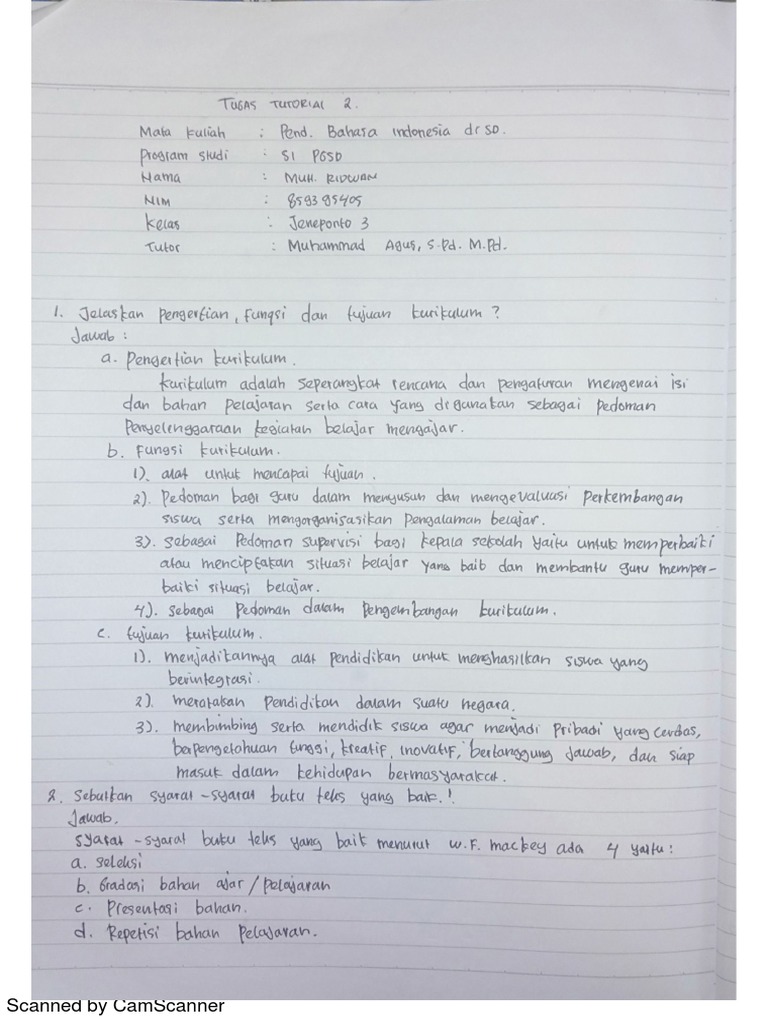 TUGAS TUTORIAL 2.
Mata kuliah : Pend. Bahasa Indonesia di SD.
Program studi : S1 PGSD
Nama : MUH. RIDWAN
NIM : 859395405
Kelas : Jeneponto 3
Tutor : Muhammad Agus, S.Pd. M.Pd.
1. Jelaskan pengertian, fungsi dan tujuan kurikulum ?
Jawab :
a. Pengertian kurikulum.
Kurikulum adalah seperangkat rencana dan pengaturan mengenai isi
dan bahan pelajaran serta cara yang digunakan sebagai pedoman
penyelenggaraan kegiatan belajar mengajar.
b. Fungsi kurikulum.
1). alat untuk mencapai tujuan.
2). Pedoman bagi guru dalam menyusun dan mengevaluasi perkembangan
siswa serta mengorganisasikan pengalaman belajar.
3). sebagai pedoman supervisi bagi kepala sekolah yaitu untuk memperbaiki
atau menciptakan situasi belajar yang baib dan membantu guru memper-
baiki situasi belajar.
4). sebagai pedoman dalam pengembangan kurikulum.
c. tujuan kurikulum.
1). menjadikannya alat pendidikan untuk menghasilkan siswa yang
berintegrasi.
2). meratakan pendidikan dalam suatu negara.
3). membimbing serta mendidik siswa agar menjadi pribadi yang cerdas,
berpengetahuan tinggi, kreatif, inovatif, bertanggung jawab, dan siap
masuk dalam kehidupan bermasyarakat.
2. Sebutkan syarat-syarat buku teks yang baik.!
Jawab.
Syarat-syarat buku teks yang baik menurut W.F. mackey ada 4 yaitu :
a. seleksi
b. Gradasi bahan ajar/pelajaran
c. Presentasi bahan.
d. Repetisi bahan pelajaran.
Scanned by CamScanner